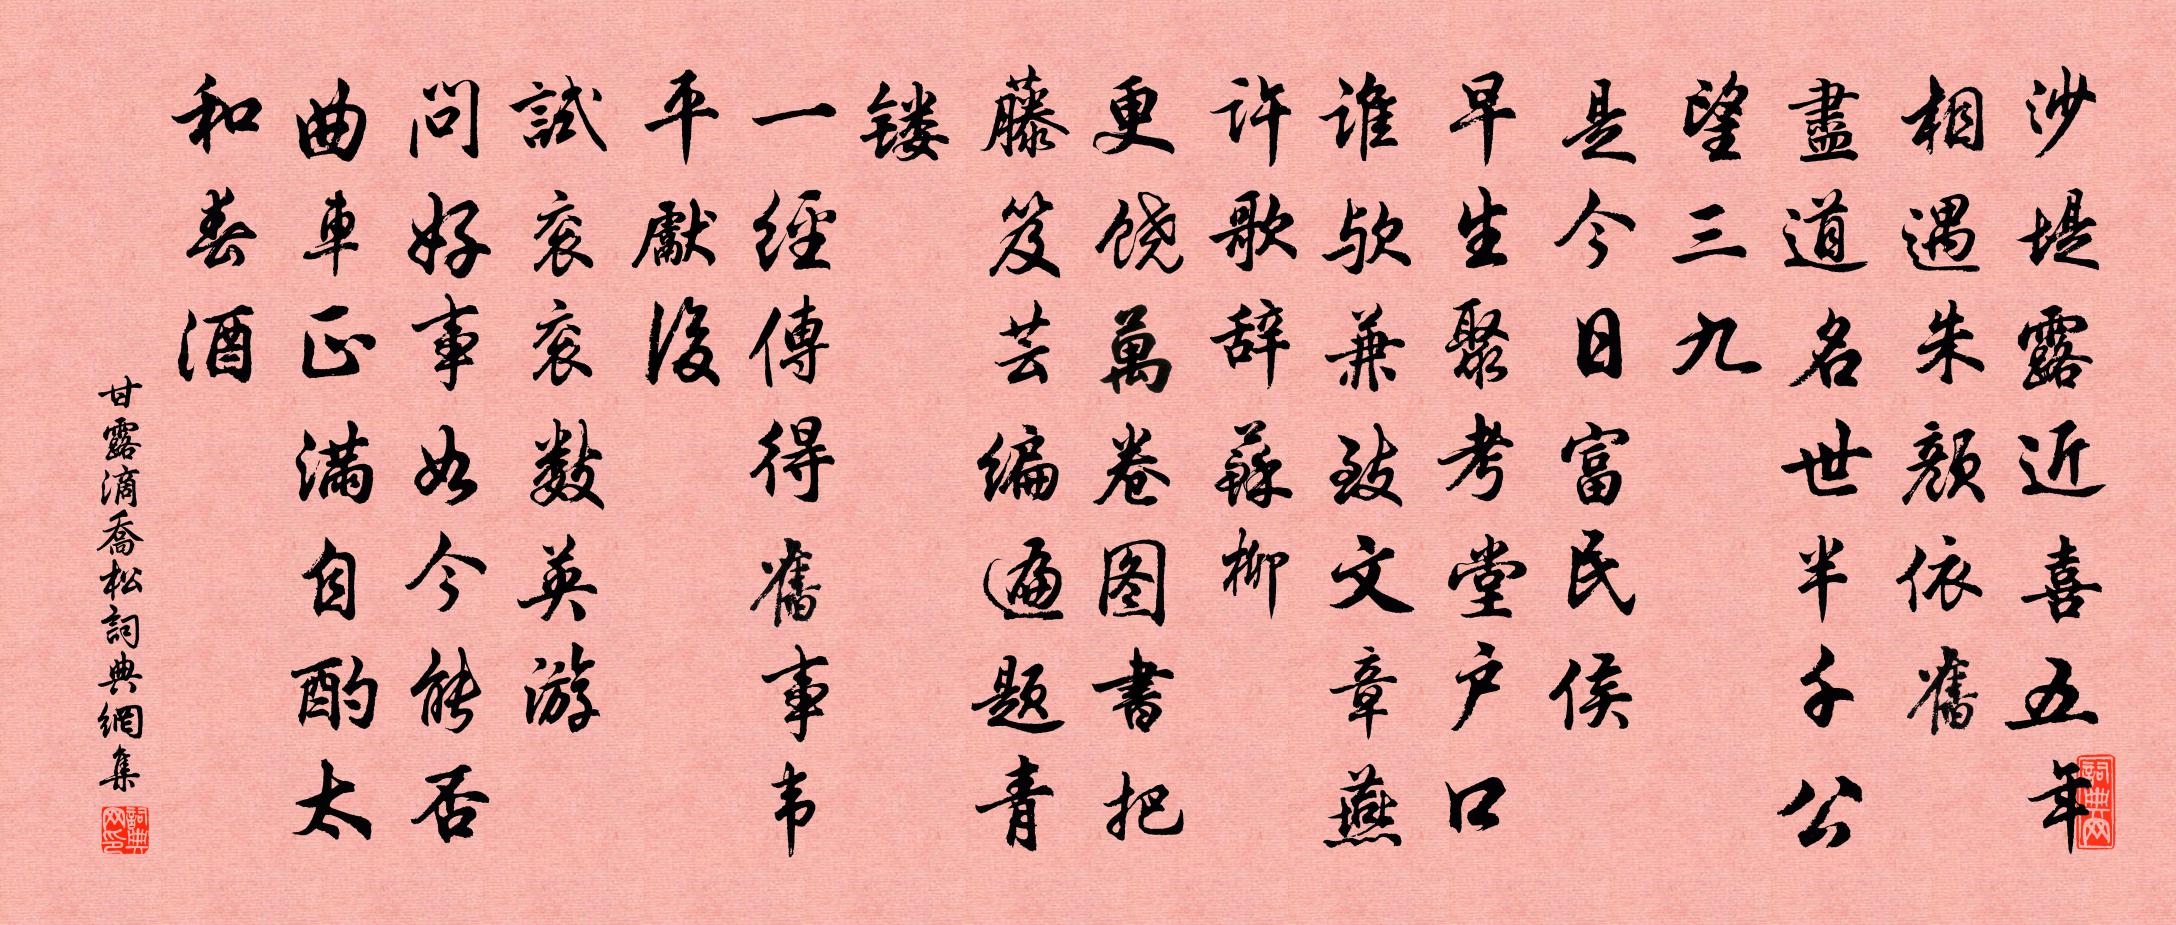 沙堤露近喜五年
相遇朱颜依舊
盡道名世半千公
望三九
是今日富民侯
早生聚考堂户口
谁欤兼致文章燕
许歌辞蘇柳
更饶萬卷图書把
藤笈芸编遍题青
镂
一經傳得舊事韦
平獻後
試衮衮数英游
问好事如今能否
曲車正满自酌太
和春酒
甘露滴喬松詞典網集
詞典网
詞典网印